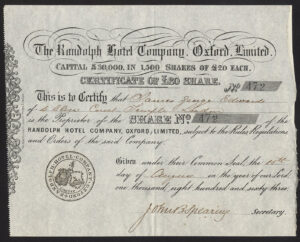 The Randolph Hotel Company, Oxford, Limited.
CAPITAL £30,000, IN 1,500 SHARES OF £20 EACH.
CERTIFICATE OF £20 SHARE.
No. 472
This is to Certify that James George Edward
of
is the Proprietor of the SHARE No. 472 of the
RANDOLPH HOTEL COMPANY, OXFORD, LIMITED, subject to the Rules, Regulations
and Orders of the said Company.
Given under their Common Seal, the
day of August in the year of our Lord
one thousand, eight hundred and sixty three.
Secretary.